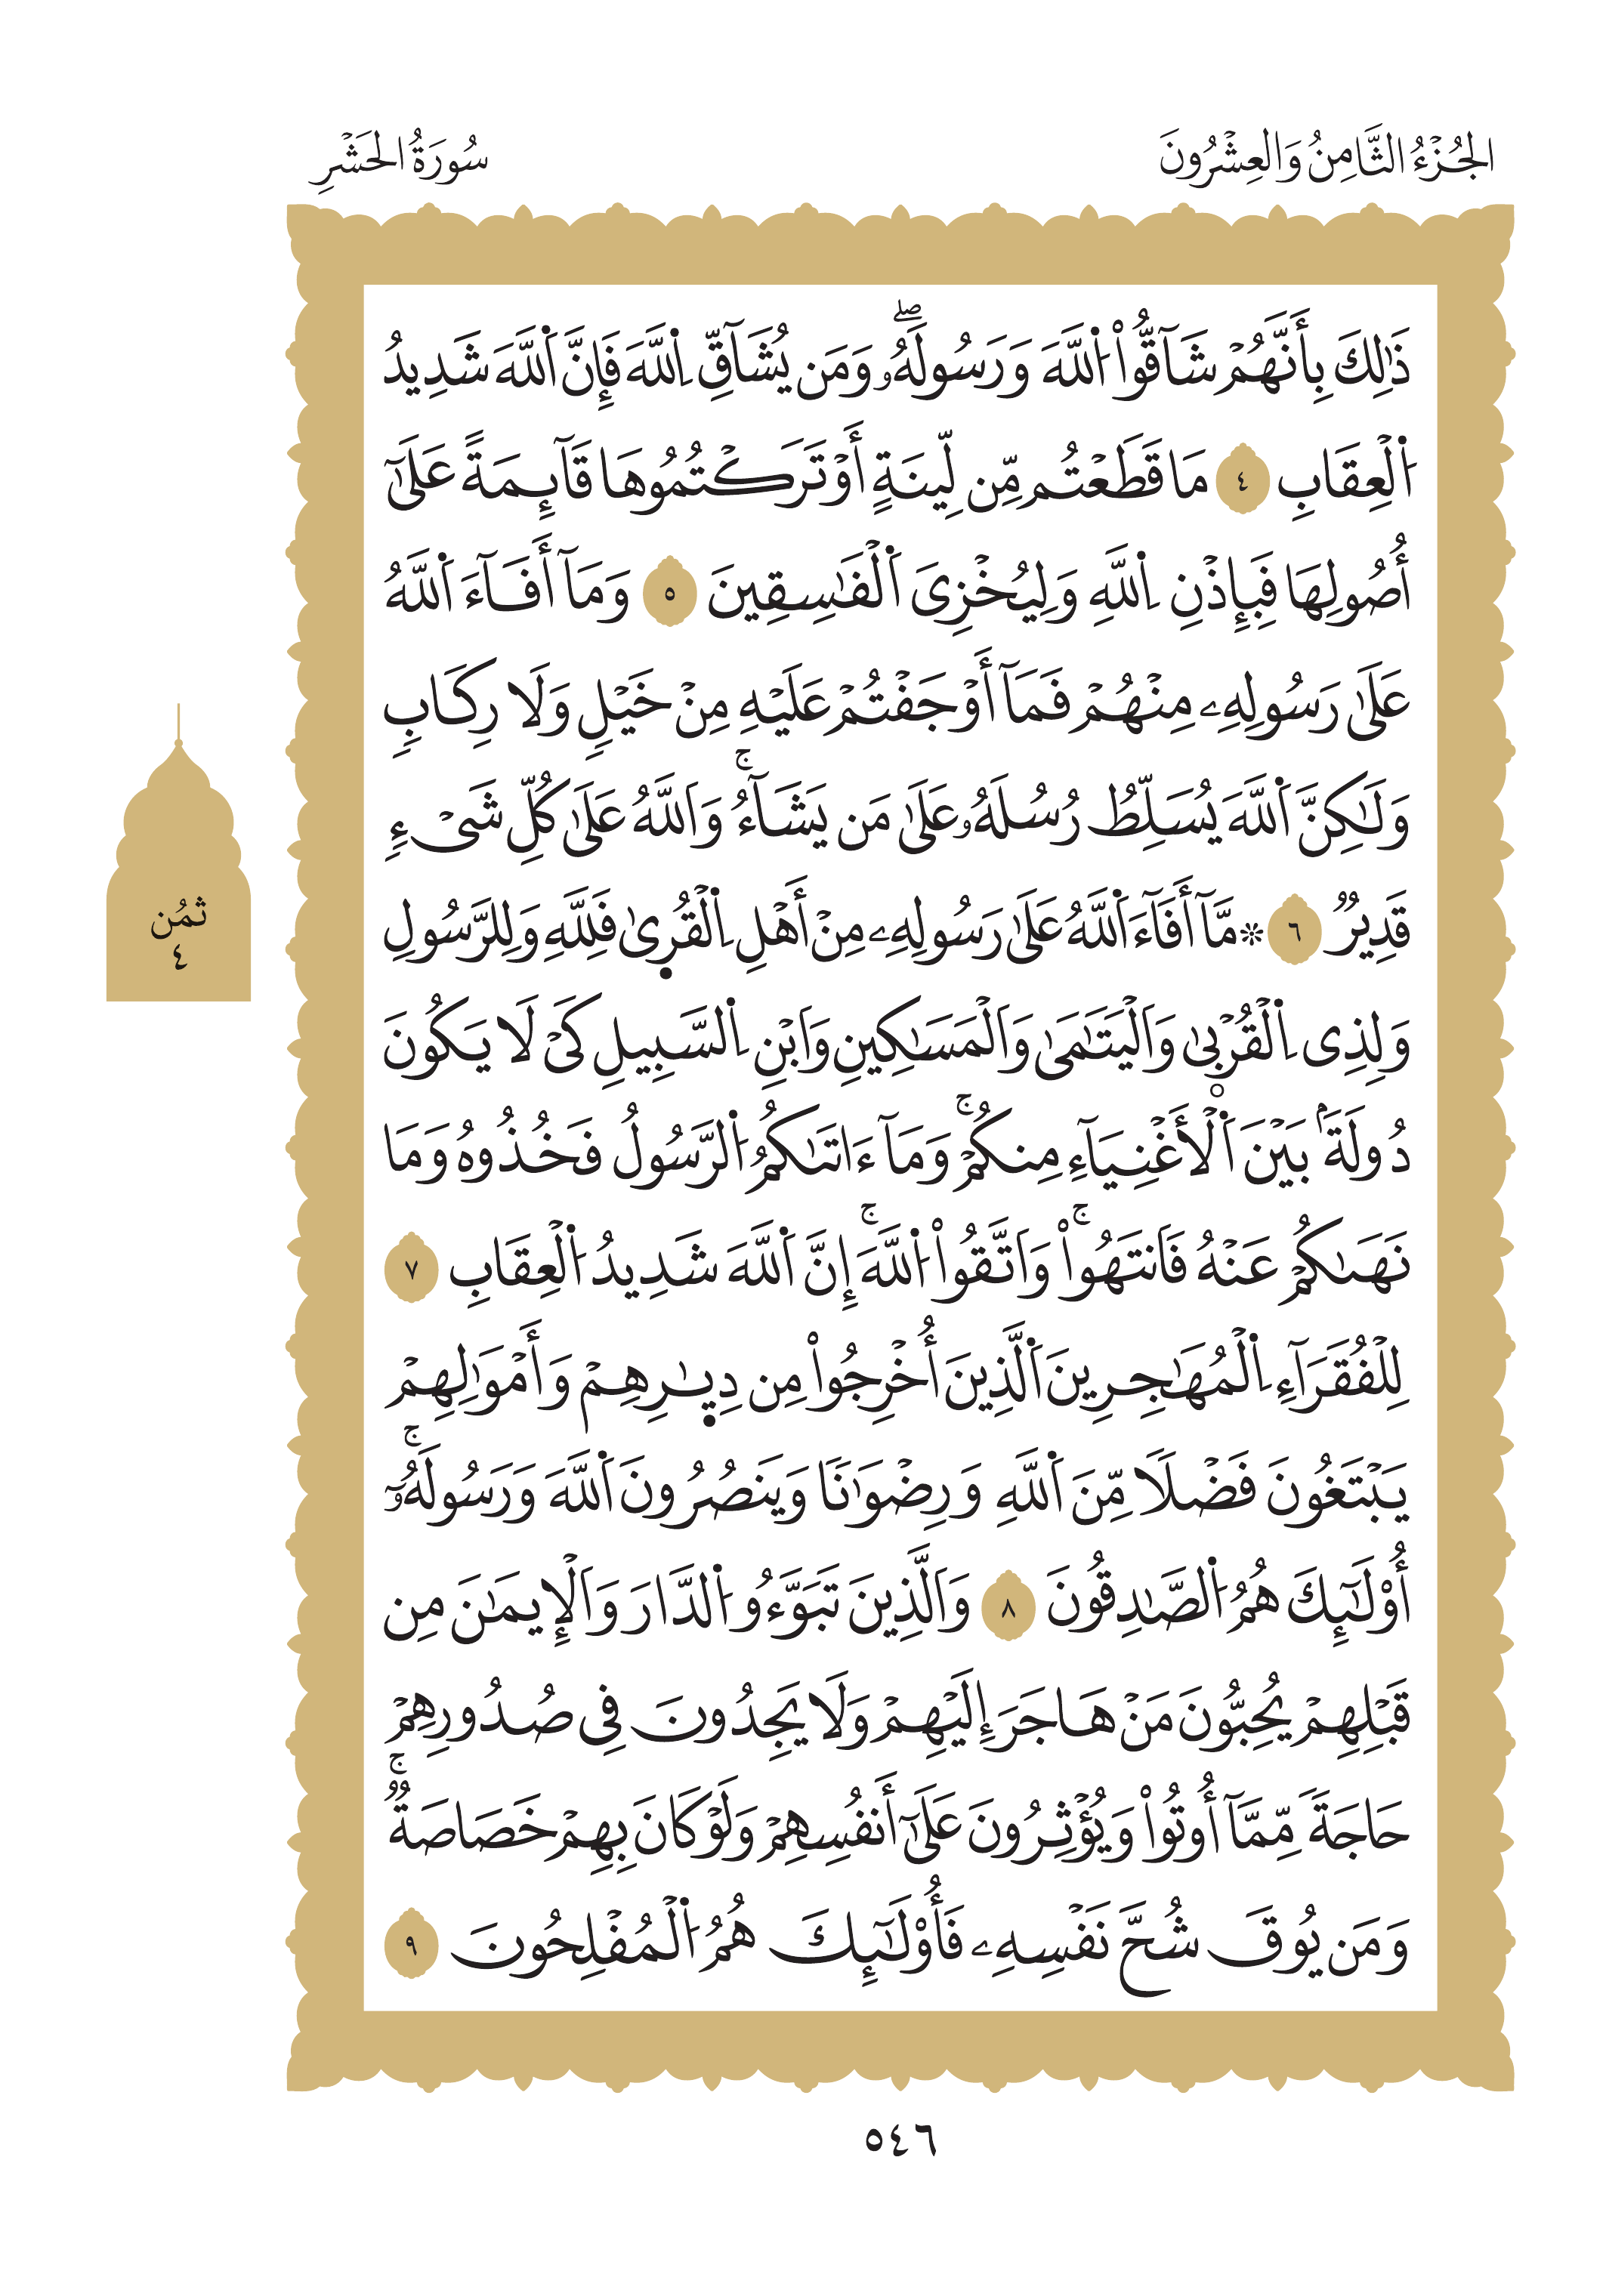 الجُزْءُ الثَّامِنُ وَالعِشْرُونَ
سُورَةُ الحَشْرِ
ذَٰلِكَ بِأَنَّهُمْ شَآقُّواْ اُ۬للَّهَ وَرَسُولَهُۥۖ وَمَن يُشَآقِّ اِ۬للَّهَ فَإِنَّ اَ۬للَّهَ شَدِيدُ
اُ۬لْعِقَابِ ٤ مَا قَطَعْتُم مِّن لِّينَةٍ أَوْ تَرَكْتُمُوهَا قَآئِمَةً عَلَىٰٓ
أُصُولِهَا فَبِإِذْنِ اِ۬للَّهِ وَلِيُخْزِىَ اَ۬لْفَٰسِقِينَ ٥ وَمَآ أَفَآءَ اَ۬للَّهُ
عَلَىٰ رَسُولِهِۦ مِنْهُمْ فَمَآ أَوْجَفْتُمْ عَلَيْهِ مِنْ خَيْلٍ وَلَا رِكَابٍ
وَلَٰكِنَّ اَ۬للَّهَ يُسَلِّطُ رُسُلَهُۥ عَلَىٰ مَن يَشَآءُۚ وَاَللَّهُ عَلَىٰ كُلِّ شَىْءٍ
قَدِيرٌ ٦ ۞ مَّآ أَفَآءَ اَ۬للَّهُ عَلَىٰ رَسُولِهِۦ مِنْ أَهْلِ اِ۬لْقُر۪ىٰ فَلِلَّهِ وَلِلرَّسُولِ
وَلِذِى اِ۬لْقُرْبىٰ وَاَلْيَتَٰمَىٰ وَاَلْمَسَٰكِينِ وَاَبْنِ اِ۬لسَّبِيلِ كَىْ لَا يَكُونَ
دُولَةَۢ بَيْنَ اَ۬لْأَغْنِيَآءِ مِنكُمْۚ وَمَآ ءَاتَىٰكُمُ اُ۬لرَّسُولُ فَخُذُوهُ وَمَا
نَهَىٰكُمْ عَنْهُ فَانتَهُواْۚ وَاَتَّقُواْ اُ۬للَّهَۚ إِنَّ اَ۬للَّهَ شَدِيدُ اُ۬لْعِقَابِ ٧
لِلْفُقَرَآءِ اِ۬لْمُهَٰجِرِينَ اَ۬لَّذِينَ أُخْرِجُواْ مِن دِيٰ۪رِهِمْ وَأَمْوَٰلِهِمْ
يَبْتَغُونَ فَضْلًا مِّنَ اَ۬للَّهِ وَرِضْوَٰنًا وَيَنصُرُونَ اَ۬للَّهَ وَرَسُولَهُۥٓۚ
أُوْلَٰٓئِكَ هُمُ اُ۬لصَّٰدِقُونَ ٨ وَاَلَّذِينَ تَبَوَّءُو اُ۬لدَّارَ وَاَلْإِيمَٰنَ مِن
قَبْلِهِمْ يُحِبُّونَ مَنْ هَاجَرَ إِلَيْهِمْ وَلَا يَجِدُونَ فِى صُدُورِهِمْ
حَاجَةً مِّمَّآ أُوتُواْ وَيُؤْثِرُونَ عَلَىٰٓ أَنفُسِهِمْ وَلَوْ كَانَ بِهِمْ خَصَاصَةٌۚ
وَمَن يُوقَ شُحَّ نَفْسِهِۦ فَأُوْلَٰٓئِكَ هُمُ اُ۬لْمُفْلِحُونَ ٩
ثمُن
٤
٥٤٦